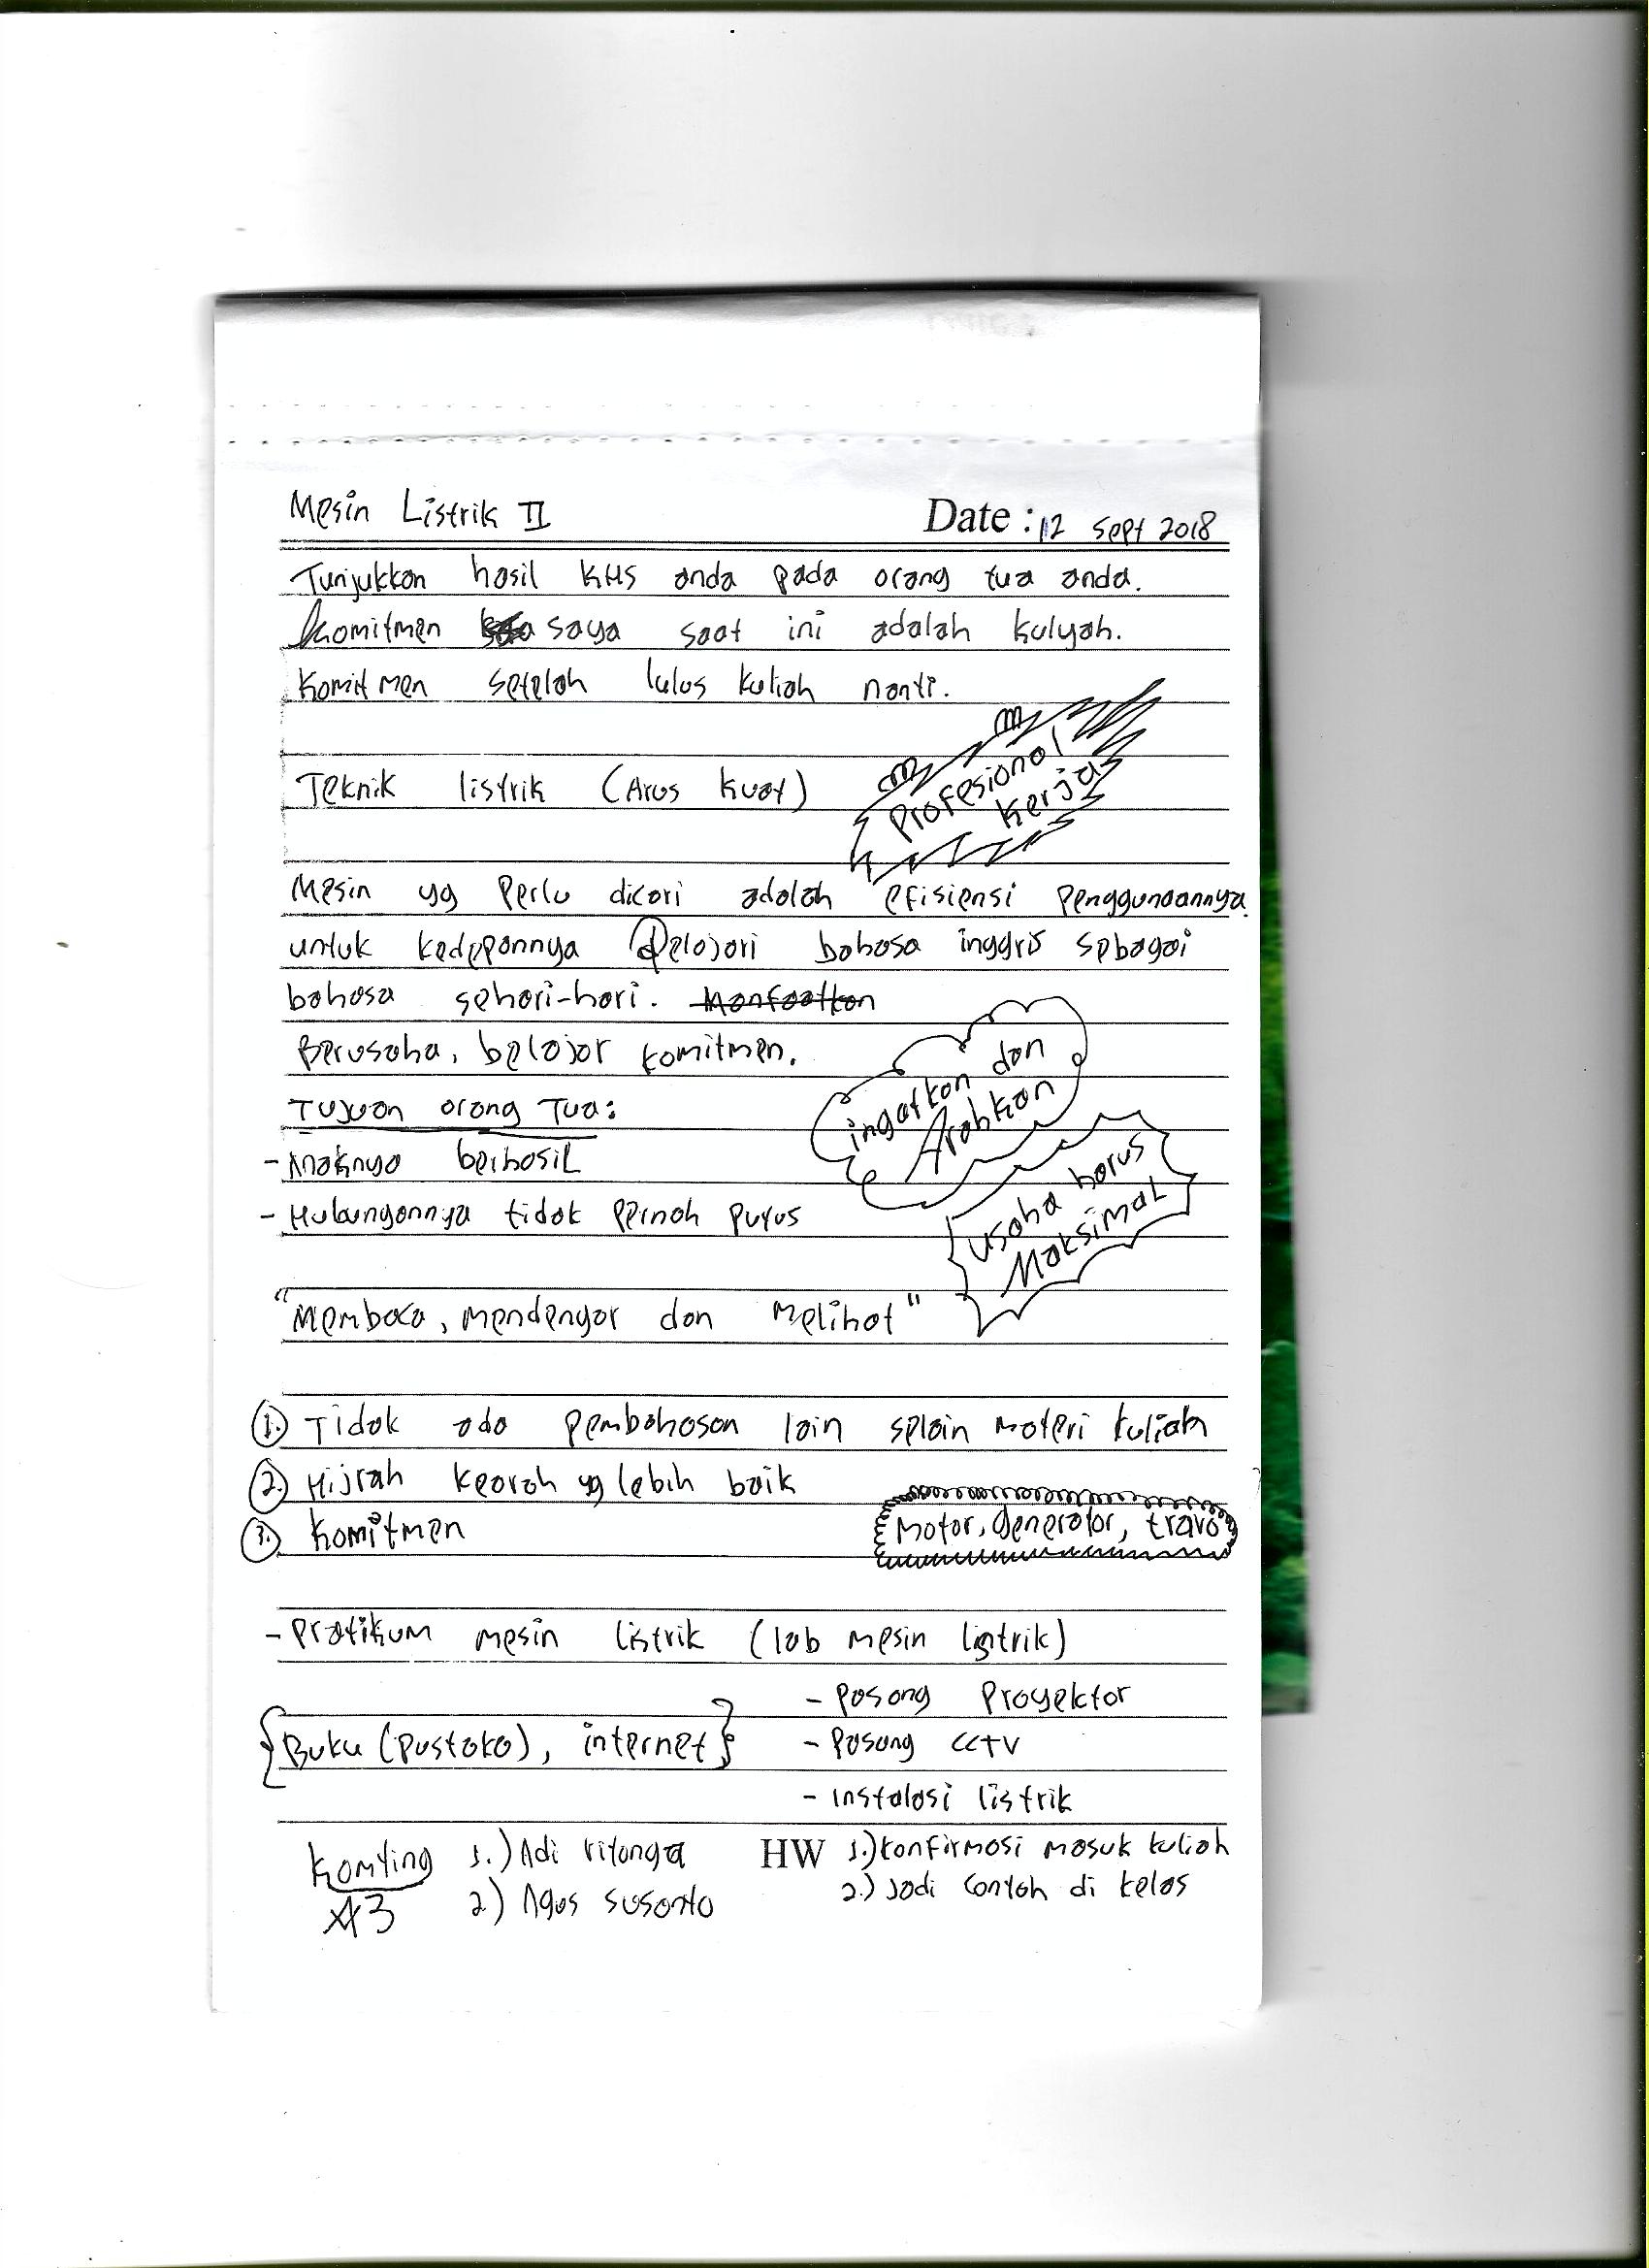 Mesin Listrik II
Date : 12 Sept 2018
Tunjukkan hasil KHS anda pada orang tua anda.
Komitmen saya saat ini adalah kulyah.
Komitmen setelah lulus kuliah nanti.
Profesional
kerja
Teknik listrik (Arus kuat)
Mesin yg perlu dicari adalah efisiensi penggunaannya.
untuk kedepannya pelajari bahasa inggris sebagai
bahasa sehari-hari. Manfaatkan
Berusaha, belajar komitmen.
ingatkan dan
Arahkan
Tujuan orang Tua:
- Anaknya berhasil
- Hubungannya tidak pernah putus
usaha harus
Maksimal
"Membaca, mendengar dan melihat"
1. Tidak ada pembahasan lain selain materi kuliah
2. Hijrah kearah yg lebih baik
3. Komitmen
Motor, generator, travo
- Pratikum mesin listrik (lab mesin listrik)
- Pasang Proyektor
{Buku (pustaka), internet}
- Pasang CCTV
- instalasi listrik
Komting 1.) Adi ritonga
A3 2) Agus susanto
HW 1.) konfirmasi masuk kuliah
2.) Jadi contoh di kelas